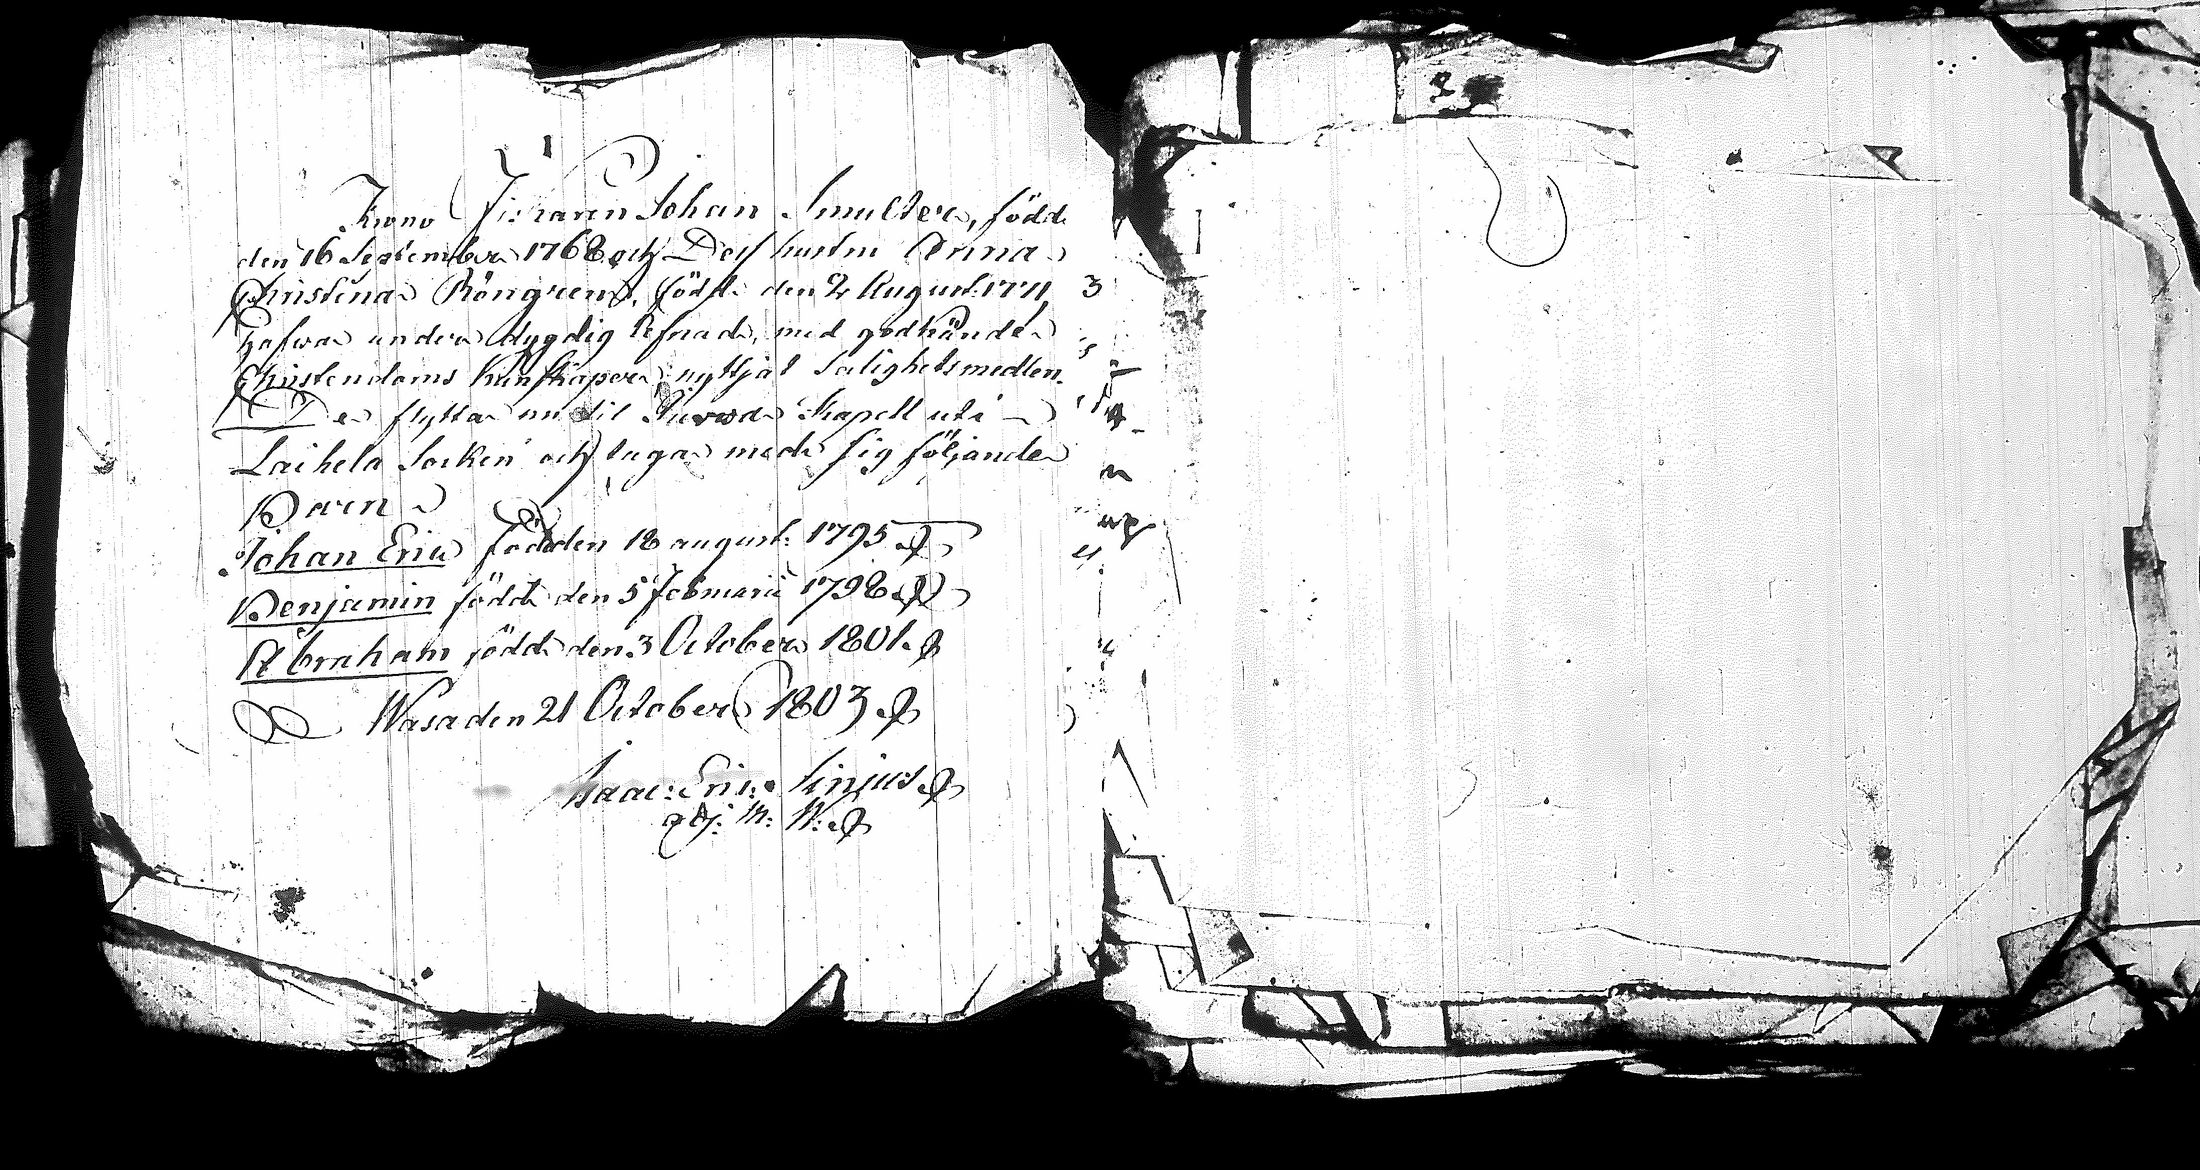 Krono Fiskaren Johan Smulter, född
den 16 September 1768 och Dess hustru Anna
Christina Röngren, född den 2 August: 1771,
hafwa under dygdig lefnad, med godkände
Christendoms kunskaper nyttjat salighetsmedlen.
De flytta nu til Jurwa Kapell uti
Laihela Socken och taga med sig följande
Barn
Johan Eric född den 18 august: 1795
Benjamin född den 5 Februarii 1798
Abraham född den 3 October 1801.
Wasa den 21 October 1803
Isaac: Eric